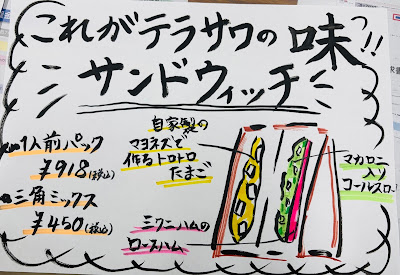 これがテラサワの味っ!!
サンドウィッチ
1人前パック
¥918(税込)
三角ミックス
¥450(税込)
自家製の
マヨネズで
作るトロトロ
たまご
ミクニハムの
ロースハム
マカロニ
入り
コールスロー